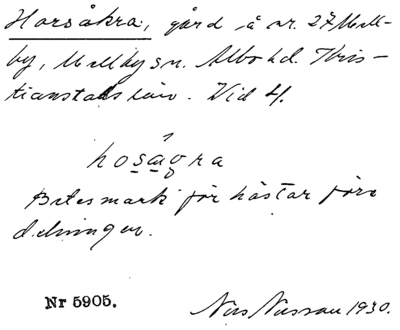 Horsåkra, gård å nr. 27 Mell-
by, Mellby sn. Albo hd. Kris-
tianstads län. Vid 4.
hosågra
Betesmark för hästar före
delningen.
Nr 5905.
Nils Nilsson 1930.